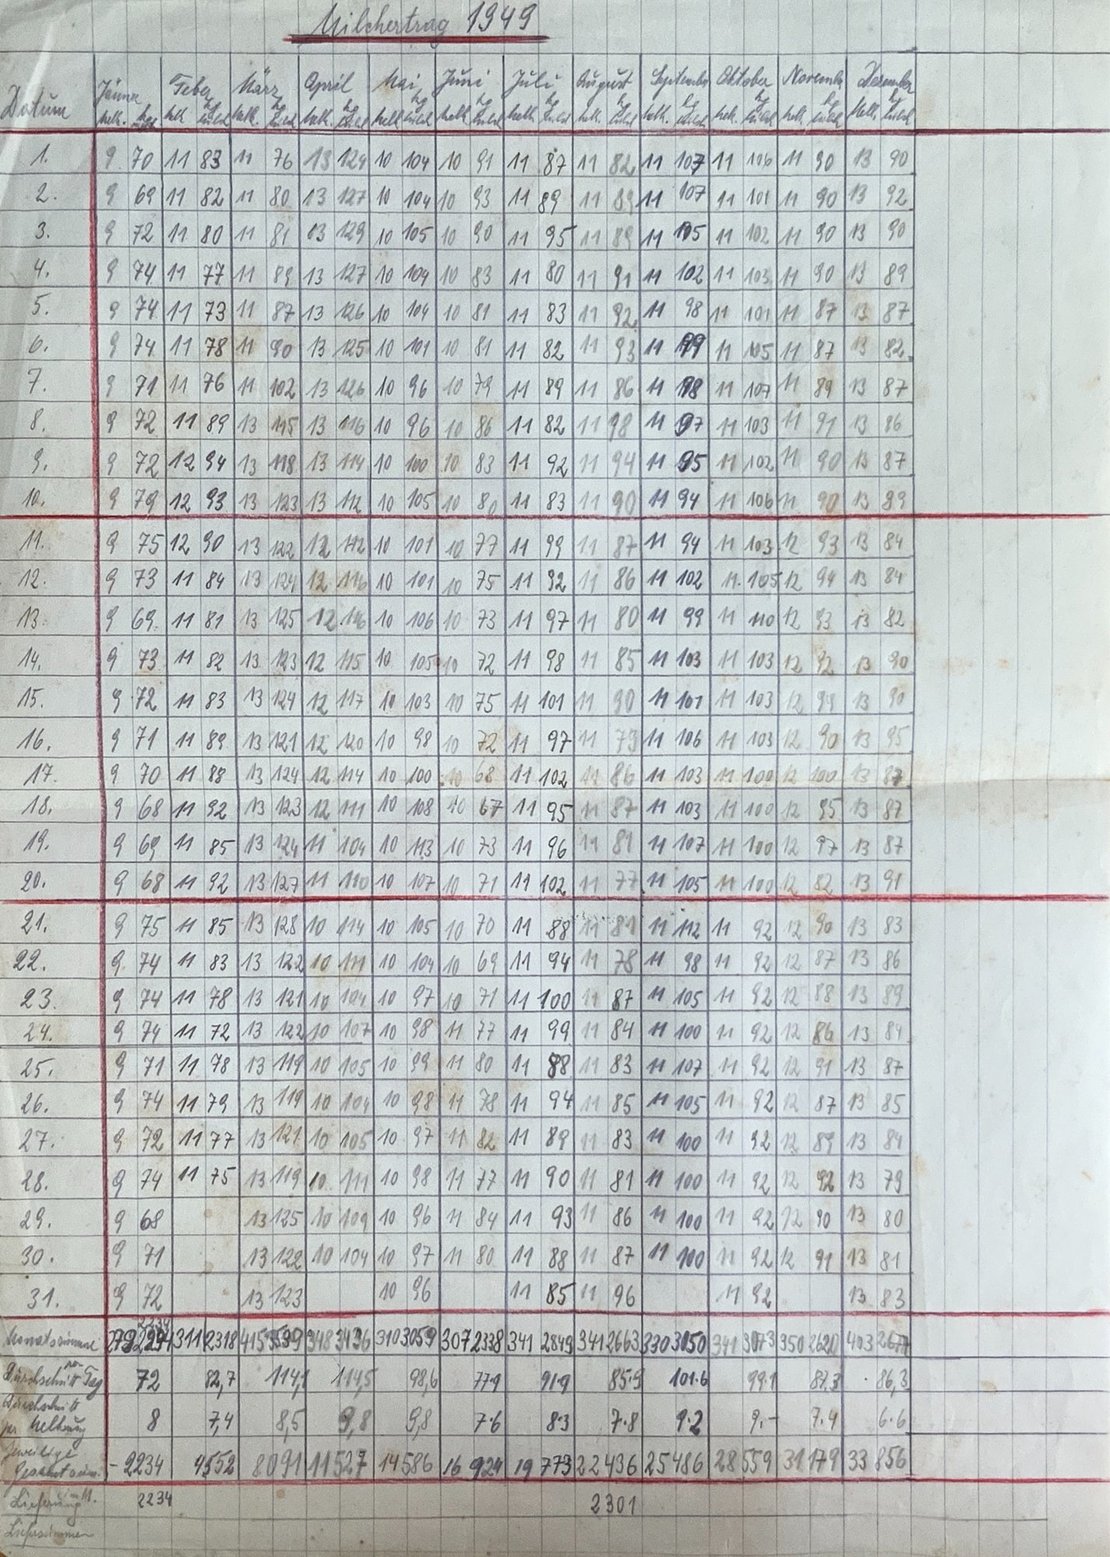 Milchertrag 1949
Datum Jänner Feber März April Mai Juni Juli August September Oktober November Dezember
melk. kg melk kg Milch melk. kg Milch melk. kg Milch melk kg Milch melk kg Milch melk. kg Milch melk kg Milch melk. kg Milch melk. kg Milch melk. kg Milch melk. kg Milch
1. 9 70 11 83 11 76 13 124 10 104 10 91 11 87 11 82 11 107 11 106 11 90 13 90
2. 9 69 11 82 11 80 13 127 10 104 10 93 11 89 11 89 11 107 11 101 11 90 13 92
3. 9 72 11 80 11 81 13 129 10 105 10 90 11 95 11 89 11 105 11 102 11 90 13 90
4. 9 74 11 77 11 89 13 127 10 104 10 83 11 80 11 91 11 102 11 103 11 90 13 89
5. 9 74 11 73 11 87 13 126 10 104 10 81 11 83 11 92 11 98 11 101 11 87 13 87
6. 9 74 11 78 11 90 13 125 10 101 10 81 11 82 11 93 11 99 11 105 11 87 13 82
7. 9 71 11 76 11 102 13 126 10 96 10 79 11 89 11 86 11 98 11 107 11 89 13 87
8. 9 72 11 89 13 115 13 116 10 96 10 86 11 82 11 98 11 97 11 103 11 91 13 86
9. 9 72 12 94 13 118 13 114 10 100 10 83 11 92 11 94 11 95 11 102 11 90 13 87
10. 9 79 12 93 13 123 13 112 10 105 10 80 11 83 11 90 11 94 11 106 11 90 13 89
11. 9 75 12 90 13 122 12 112 10 101 10 77 11 99 11 87 11 94 11 103 12 93 13 84
12. 9 73 11 84 13 124 12 116 10 101 10 75 11 92 11 86 11 102 11 105 12 94 13 84
13. 9 69 11 81 13 125 12 116 10 106 10 73 11 97 11 80 11 99 11 110 12 93 13 82
14. 9 73 11 82 13 123 12 115 10 105 10 72 11 98 11 85 11 103 11 103 12 92 13 90
15. 9 72 11 83 13 124 12 117 10 103 10 75 11 101 11 90 11 101 11 103 12 99 13 90
16. 9 71 11 89 13 121 12 120 10 98 10 72 11 97 11 79 11 106 11 103 12 90 13 95
17. 9 70 11 88 13 124 12 114 10 100 10 68 11 102 11 86 11 103 11 100 12 100 13 87
18. 9 68 11 92 13 123 12 111 10 108 10 67 11 95 11 87 11 103 11 100 12 95 13 87
19. 9 69 11 85 13 124 11 104 10 113 10 73 11 96 11 81 11 107 11 100 12 97 13 87
20. 9 68 11 92 13 127 11 110 10 107 10 71 11 102 11 77 11 105 11 100 12 82 13 91
21. 9 75 11 85 13 128 10 114 10 105 10 70 11 88 11 81 11 112 11 92 12 90 13 83
22. 9 74 11 83 13 122 10 111 10 104 10 69 11 94 11 78 11 98 11 92 12 87 13 86
23. 9 74 11 78 13 121 10 104 10 97 10 71 11 100 11 87 11 105 11 92 12 88 13 89
24. 9 74 11 72 13 122 10 107 10 98 11 77 11 99 11 84 11 100 11 92 12 86 13 84
25. 9 71 11 78 13 119 10 105 10 99 11 80 11 88 11 83 11 107 11 92 12 91 13 87
26. 9 74 11 79 13 119 10 101 10 98 11 78 11 94 11 85 11 105 11 92 12 87 13 85
27. 9 72 11 77 13 121 10 105 10 97 11 82 11 89 11 83 11 100 11 92 12 89 13 84
28. 9 74 11 75 13 119 10 111 10 98 11 77 11 90 11 81 11 100 11 92 12 92 13 79
29. 9 68 13 125 10 109 10 96 11 84 11 93 11 86 11 100 11 92 12 90 13 80
30. 9 71 13 122 10 104 10 97 11 80 11 88 11 87 11 100 11 92 12 91 13 81
31. 9 72 13 123 10 96 11 85 11 96 11 92 13 83
Monatssumme 279 2234 311 2318 415 3539 348 3436 310 3059 307 2338 341 2849 341 2663 330 3050 341 3073 350 2620 403 2677
Durchschnitt pro Tag 72 82,7 114,1 114,5 98,6 77.9 91.9 85.9 101.6 99.1 87.3 86,3
Durchschnitt per Melkung 8 7,4 8,5 9,8 9,8 7.6 8.3 7.8 9.2 9.- 7.4 6.6
Jeweilige Gesamtsum. - 2234 4552 8091 11527 14586 16924 19773 22436 25486 28559 31179 33856
Lieferung 2234 2301
Liefersummen